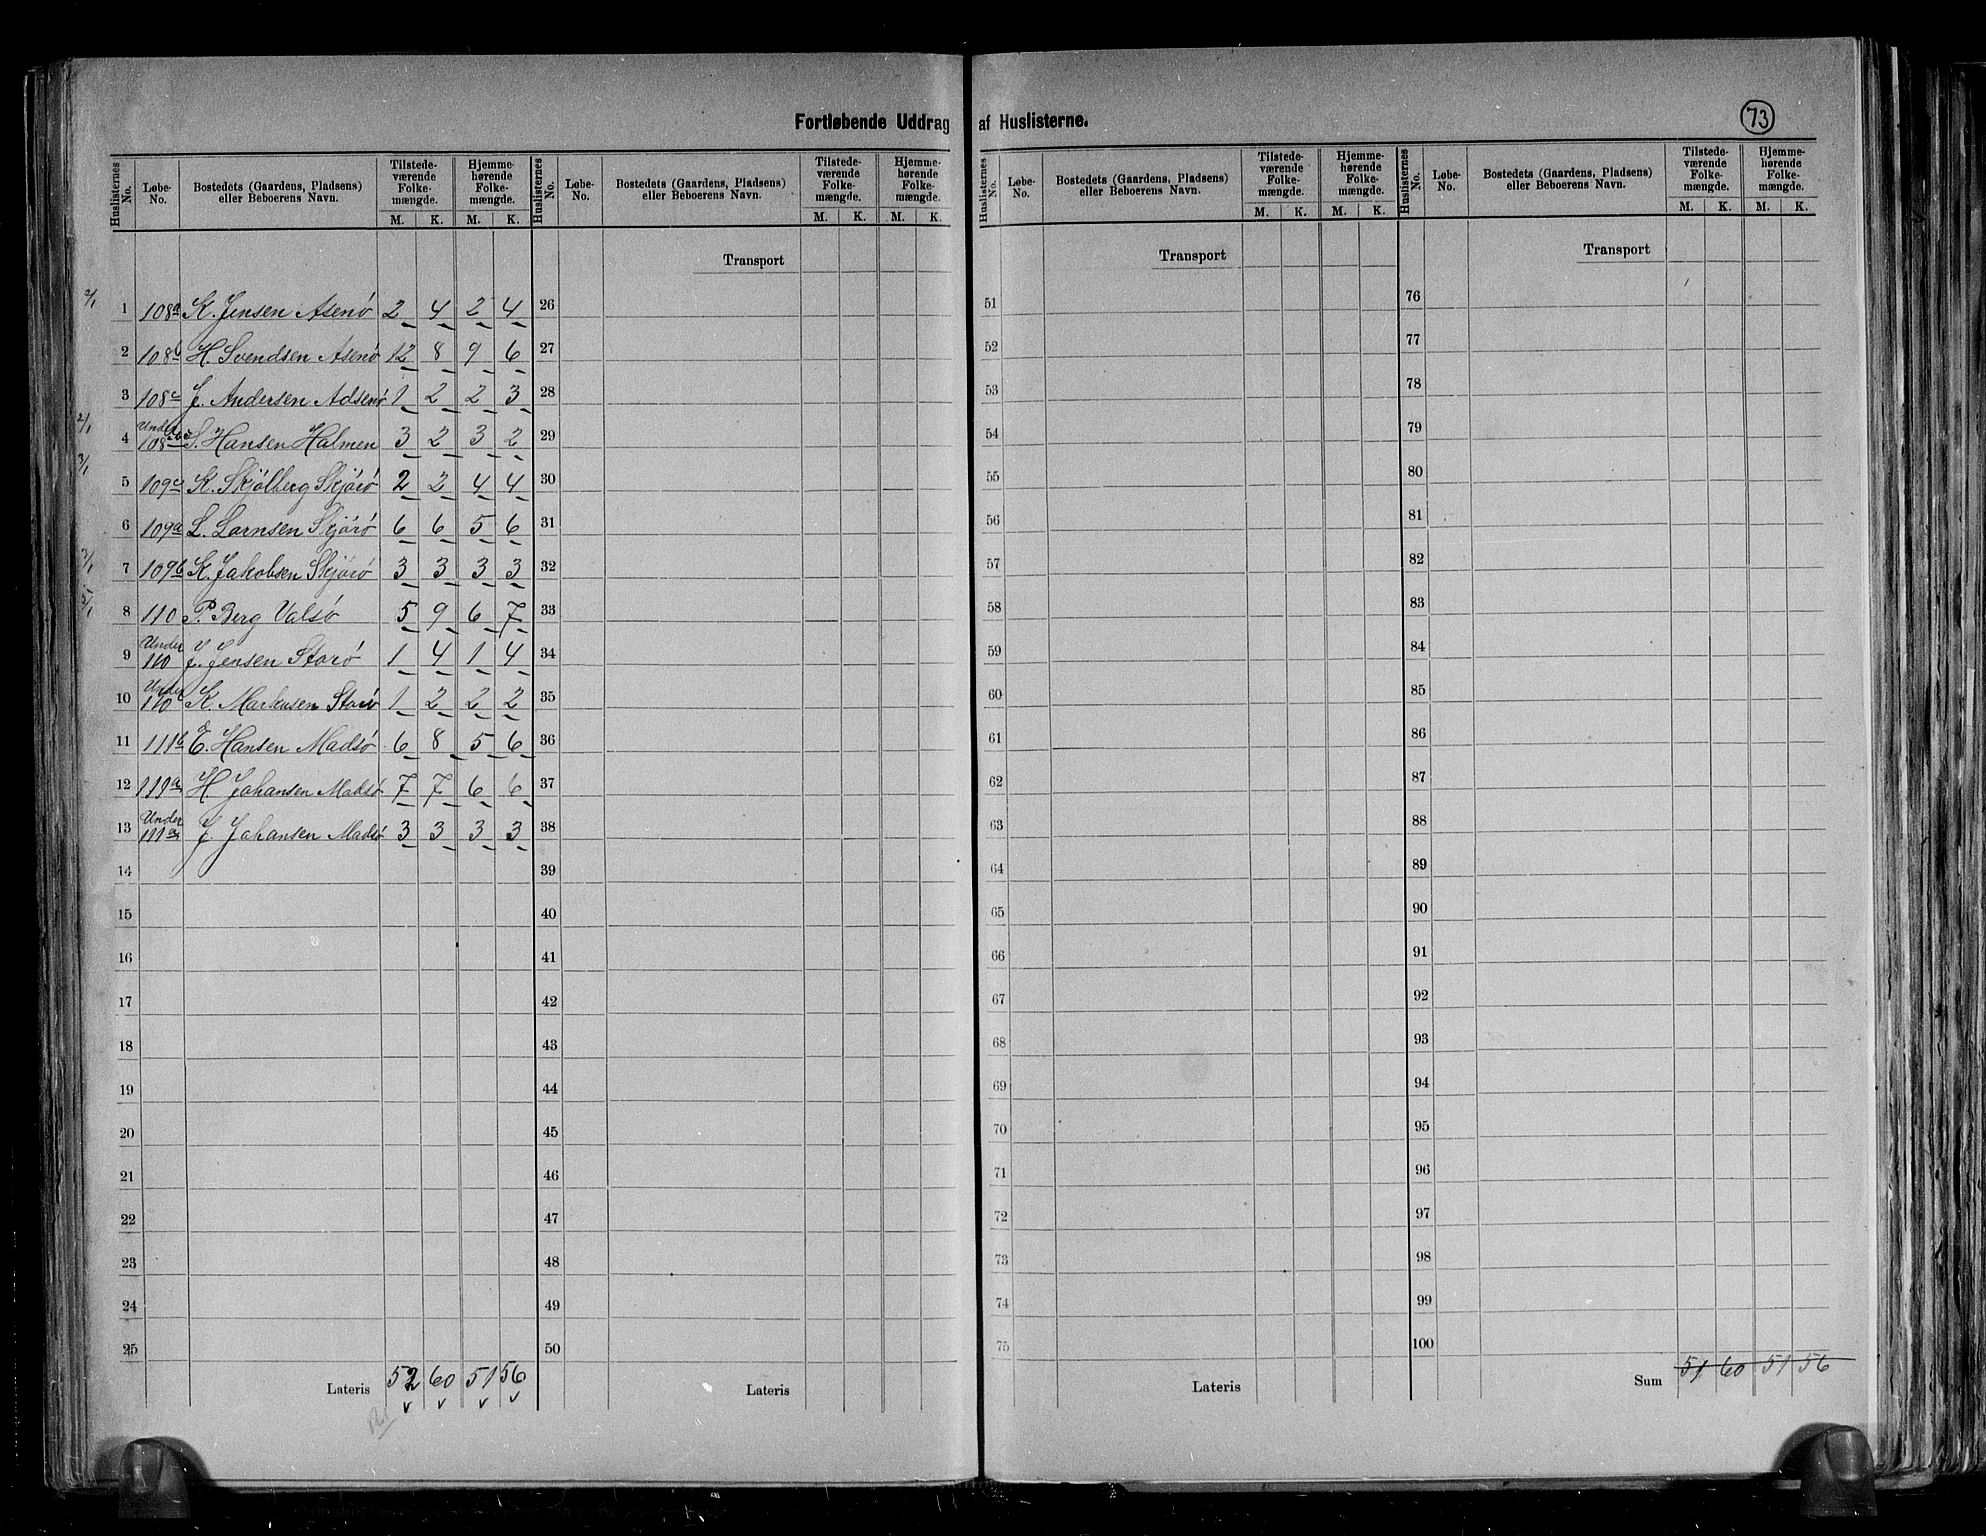 Fortløbende Uddrag af Huslisterne.
73
Huslisternes No. | Løbe-No. | Bostedets (Gaardens, Pladsens) eller Beboerens Navn. | Tilstede-værende Folke-mængde. M. K. | Hjemme-hørende Folke-mængde. M. K.
2/1 1 108a K. Jensen Asenö 2 4 2 4
2 108b H. Svendsen Asenö 12 8 9 6
3 108c J. Andersen Adsenö 1 2 2 3
2/1 4 Under 108 S. Hansen Halmen 3 2 3 2
3/1 5 109c K. Skjölberg Skjörö 2 2 4 4
6 109a L. Larnsen Skjörö 6 6 5 6
3/1 7 109b K. Jakobsen Skjörö 3 3 3 3
5/1 8 110 P. Berg Valsö 5 9 6 7
9 Under 110 J. Jensen Storö 1 4 1 4
10 Under 110 K. Markusen Storö 1 2 2 2
11 111b E. Hansen Madsö 6 8 5 6
12 111a H Johansen Madsö 7 7 6 6
13 Under 111a J. Johansen Madsö 3 3 3 3
14
15
16
17
18
19
20
21
22
23
24
25
Lateris 52 60 51 56
Huslisternes No. | Løbe-No. | Bostedets (Gaardens, Pladsens) eller Beboerens Navn. | Tilstede-værende Folke-mængde. M. K. | Hjemme-hørende Folke-mængde. M. K.
Transport
26
27
28
29
30
31
32
33
34
35
36
37
38
39
40
41
42
43
44
45
46
47
48
49
50
Lateris
Huslisternes No. | Løbe-No. | Bostedets (Gaardens, Pladsens) eller Beboerens Navn. | Tilstede-værende Folke-mængde. M. K. | Hjemme-hørende Folke-mængde. M. K.
Transport
51
52
53
54
55
56
57
58
59
60
61
62
63
64
65
66
67
68
69
70
71
72
73
74
75
Lateris
Huslisternes No. | Løbe-No. | Bostedets (Gaardens, Pladsens) eller Beboerens Navn. | Tilstede-værende Folke-mængde. M. K. | Hjemme-hørende Folke-mængde. M. K.
Transport
76
77
78
79
80
81
82
83
84
85
86
87
88
89
90
91
92
93
94
95
96
97
98
99
100
Sum 51 60 51 56